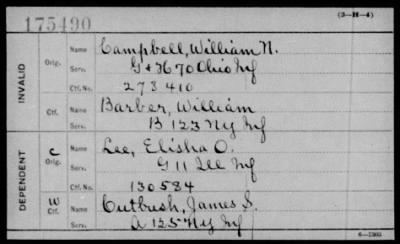 175490
(3—H—4)
INVALID
Orig.
Name Campbell, William N.
Serv. G + H 70 Ohio Inf
Ctf. No. 273410
Ctf.
Name Barber, William
Serv. B 123 Ny Inf
DEPENDENT
C
Orig.
Name Lee, Elisha O.
Serv. G 11 Ill Inf
Ctf. No. 130584
W
Ctf.
Name Cutbush, James S.
Serv. A 125 Ny Inf